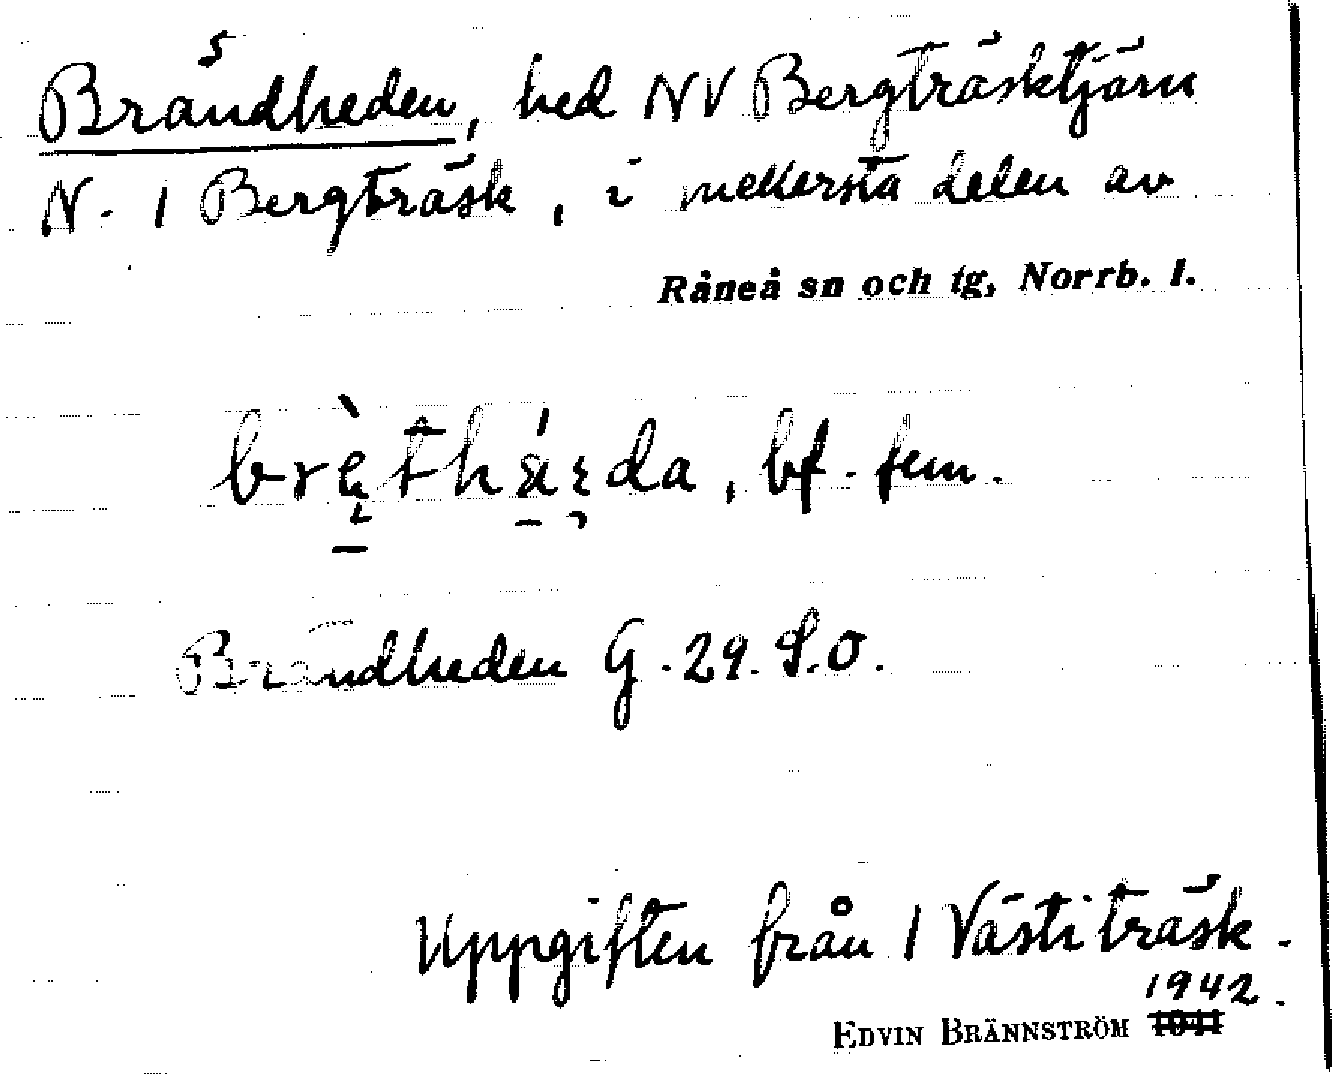 Brändheden, hed NV Bergträsktjärn
N. 1 Bergträsk, i mellersta delen av
Råneå sn och tg, Norrb. l.
bf. fem.
Brändheden G. 29. S.O.
Uppgiften från 1 Västiträsk.
1942.
EDVIN BRÄNNSTRÖM 1941